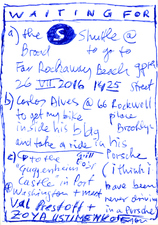 WAITING FOR
a) the S Shuttle @
Broad to go to
Far Rockaway Beach
26 VII 2016 1425 Street
b) Carlos Alves @ 66 Rockwell
to get my bike place
inside his bldg Brooklyn
and take a ride in his
Porsche
c) to the
Guggenheim (i think i
Castle in Port have been
Washington + meet never
Val Prestoff + driving
ZOYA USTIMENKO in a Porsche)